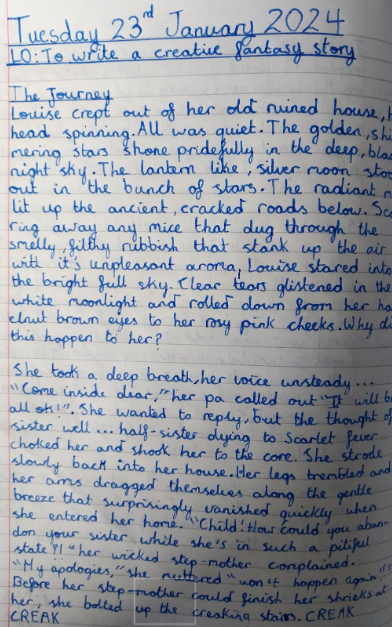 Tuesday 23rd January 2024
LO: To write a creative fantasy story
The Journey
Louise crept out of her old ruined house, h
head spinning. All was quiet. The golden, shi
mering stars shone pridefully in the deep, blac
night sky. The lantern like, silver moon stoo
out in the bunch of stars. The radiant m
lit up the ancient, cracked roads below. Sca
ring away any mice that dug through the
smelly, filthy rubbish that stank up the air
with it's unpleasant aroma, Louise stared into
the bright full sky. Clear tears glistened in the
white moonlight and rolled down from her ha
elnut brown eyes to her rosy pink cheeks. Why di
this happen to her?
She took a deep breath, her voice unsteady...
"Come inside dear," her pa called out "It will b
all ok!". She wanted to reply, but the thought of
sister well... half-sister dying to Scarlet fever
choked her and shook her to the core. She strode
slowly back into her house. Her legs trembled and
her arms dragged themselves along the gentle
breeze that surprisingly vanished quickly when
she entered her home. "Child! How could you aban
don your sister while she's in such a pitiful
state?!" her wicked step-mother complained.
"My apologies," she muttured "won't happen again."
Before her step-mother could finish her shrieks at
her, she bolted up the creaking stairs. CREAK
CREAK